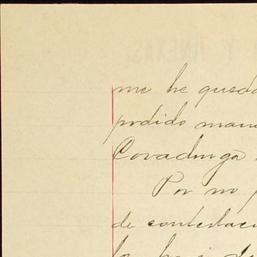 me he queda
podido man
Covadonga
Por no p
de contestaci